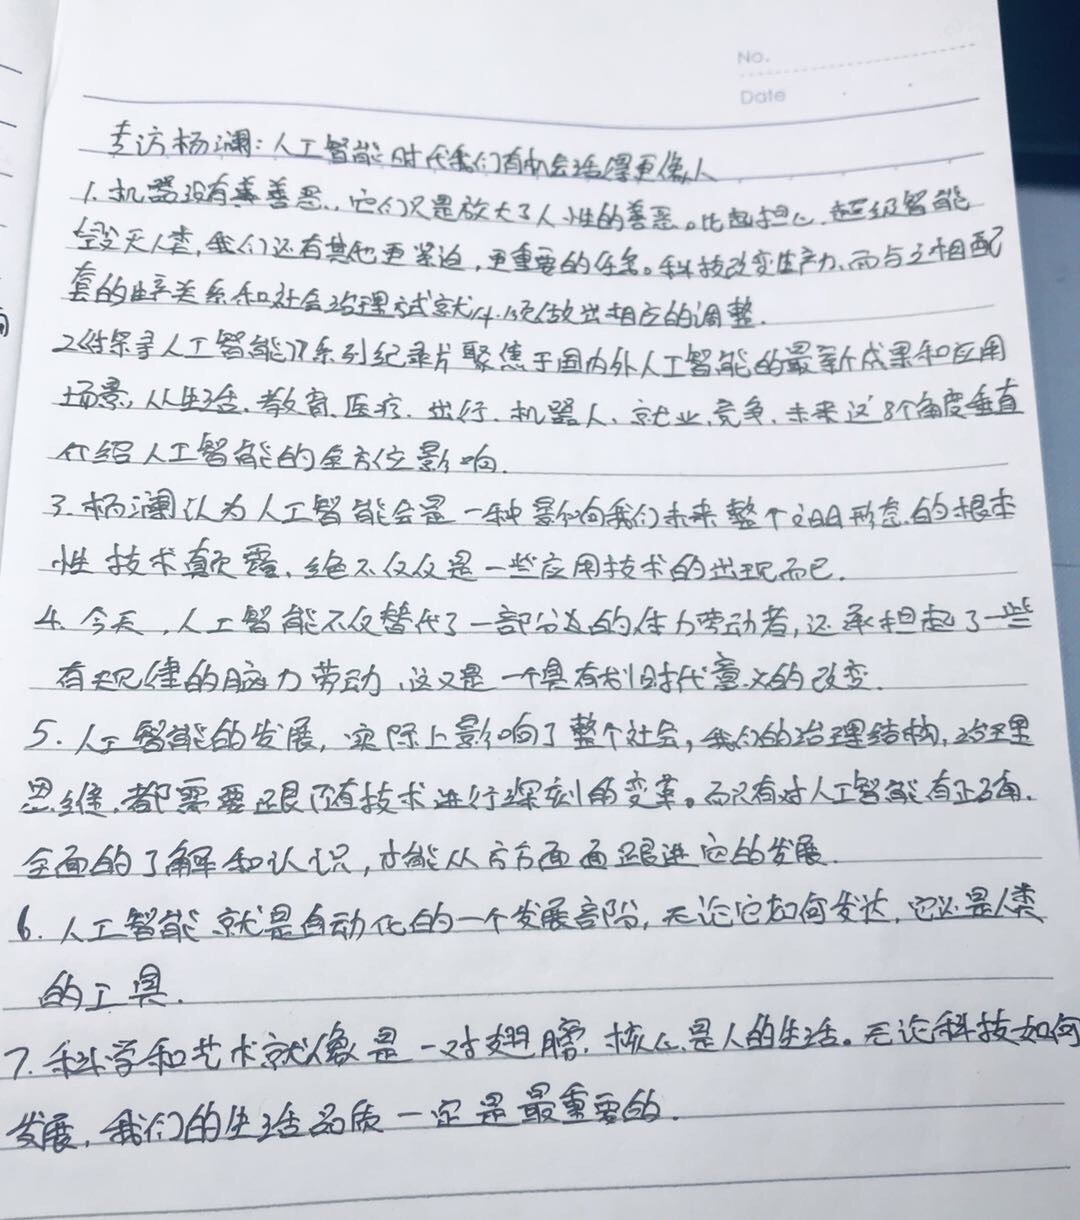 No.
Date
专访杨澜：人工智能时代我们有机会活得更像人
1.机器没有善恶，它们只是放大了人性的善恶。比起担心，超级智能
毁灭人类，我们还有其他更紧迫，更重要的任务。科技改变生产力，而与之相配
套的生产关系和社会治理方式就必须做出相应的调整.
2《探寻人工智能》系列纪录片聚焦于国内外人工智能的最新成果和应用
场景，从生活、教育、医疗、出行、机器人、就业、竞争、未来这8个角度垂直
介绍人工智能的全方位影响.
3.杨澜认为人工智能会是一种影响我们未来整个文明形态的根本
性技术颠覆，绝不仅仅是一些应用技术的出现而已.
4.今天，人工智能不仅替代了一部分人的体力劳动者，还承担起了一些
有规律的脑力劳动，这又是一个具有划时代意义的改变.
5.人工智能的发展，实际上影响了整个社会，我们的治理结构，治理
思维，都需要跟随技术进行深刻的变革。而只有对人工智能有正确、
全面的了解和认识，才能从方方面面跟进它的发展.
6.人工智能就是自动化的一个发展阶段，无论它如何发达，它还是人类
的工具.
7.科学和艺术就像是一对翅膀，核心是人的生活。无论科技如何
发展，我们的生活品质一定是最重要的.